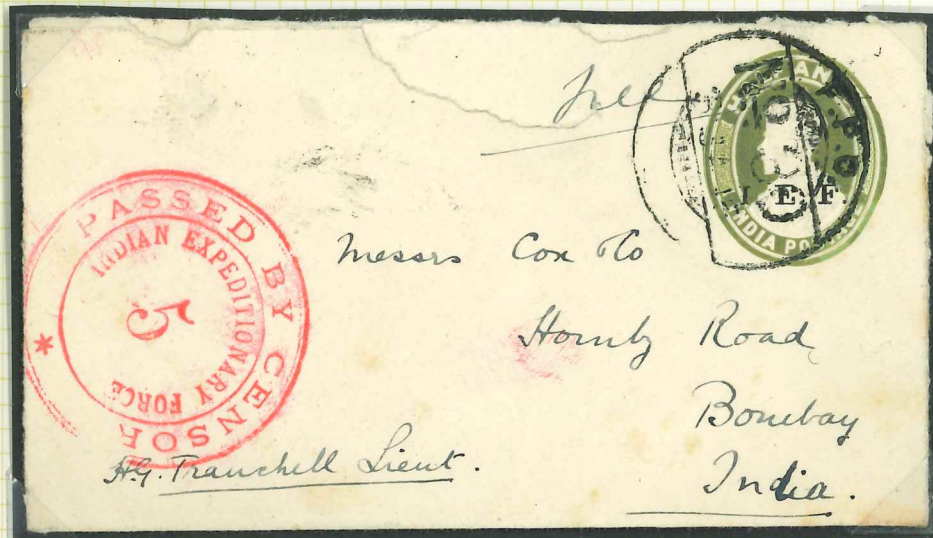 HALF AN
I.E.F.
INDIA POSTAGE
F.P.O
PASSED BY CENSOR
INDIAN EXPEDITIONARY FORCE
5
Messrs Cox & Co
Hornby Road
Bombay
India.
H.G. Tranchell Lieut.